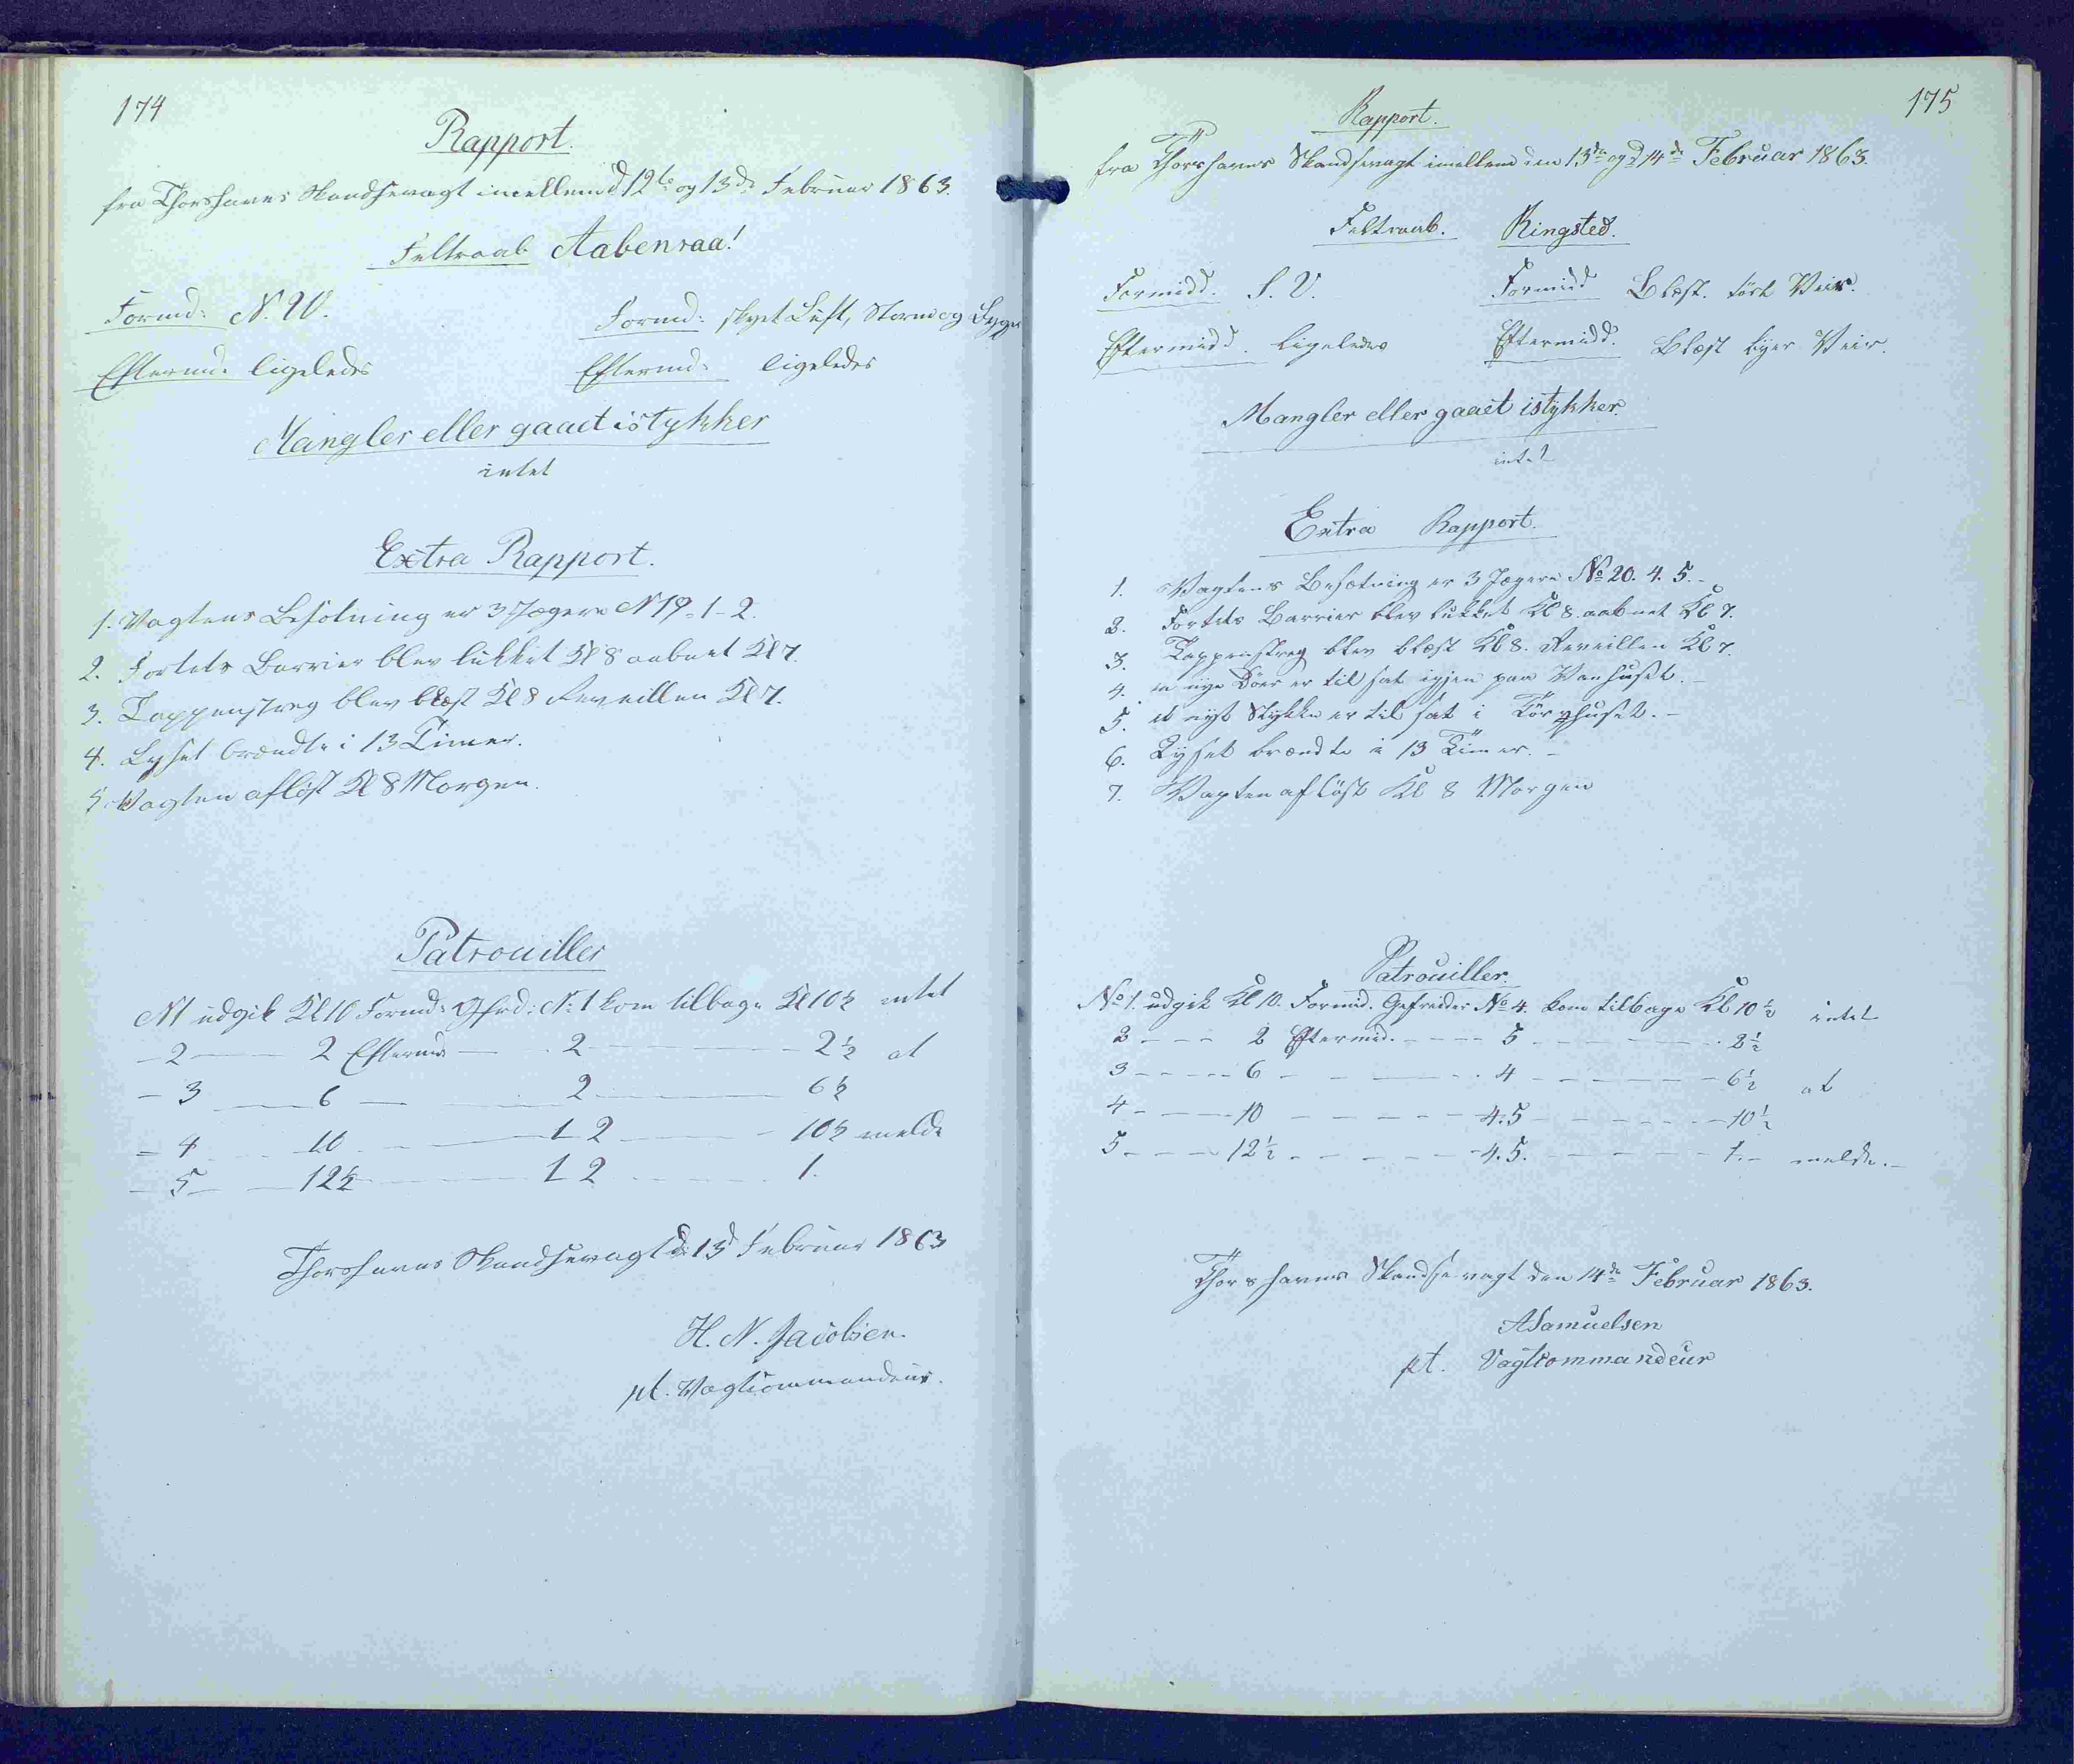 174
Rapport.
fra Thorshavns Skandsevagt imellem d 12te og 13de Februar 1863.
Feltraab Aabenraa!
Formd: N. W. Formd: skyet Luft, Storm og Byger
Eftermd: ligeledes Eftermd: ligeledes
Mangler eller gaaet istykker
intet
Extra Rapport.
1. Vagtens Besætning er 3 Jægere N 19-1-2.
2. Fortets Barrier blev lukket Kl 8 aabnet Kl 7.
3. Tappenstreg blev blæst Kl 8 Reveillen Kl 7.
4. Lyset brændte i 13 Timer.
5. Vagten afløst Kl 8 Morgen.
Patrouiller
N1 udgik Kl 10 Formd: Gefrd: N: 1 kom tilbage Kl 10½ intet
- 2 — 2 Eftermd — 2 — 2½ at
- 3 — 6 — 2 — 6½
- 4 — 10 — 1 2 — 10½ melde
- 5 — 12½ — 1 2 — 1.
Thorshavns Skandsevagt d: 13d Februar 1863
H. N. Jacobsen.
pt. Vagtcommandeur.
175
Rapport.
fra Thorshavns Skandsevagt imellem den 13de og d 14de Februar 1863.
Feltraab. Ringsted.
Formidd. S. V. Formidd Blæst. tört Veir.
Eftermidd. ligeledes Eftermidd. Blæst Byer Veir.
Mangler eller gaaet istykker.
intet
Extra Rapport.
1. Vagtens Besætning er 3 Jægere No 20. 4. 5.
2. Fortets Barrier blev lukket Kl 8. aabnet Kl 7.
3. Tappenstreg blev blæst Kl 8. Reveillen Kl 7.
4. en nye Döer er til sat igjen paa Vanhuset.
5. et nyt Stykke er til sat i Törvhuset.
6. Lyset brændte i 13 Timer.
7. Vagten aflöst Kl 8 Morgen
Patrouiller.
No 1. udgik Kl 10. Formid. Gefreider No 4. kom tilbage Kl 10½ intet
2 - - - 2 Eftermid. - - - - 5 - - - - 2½
3 - - - - 6 - - - - 4 - - - - 6½ at
4 - - - - 10 - - - - 4.5 - - - - 10½
5 - - - - 12½ - - - - 4.5. - - - - 1. - melde.
Thorshavns Skandsevagt den 14de Februar 1863.
ASamuelsen
pt. Vagtcommandeur